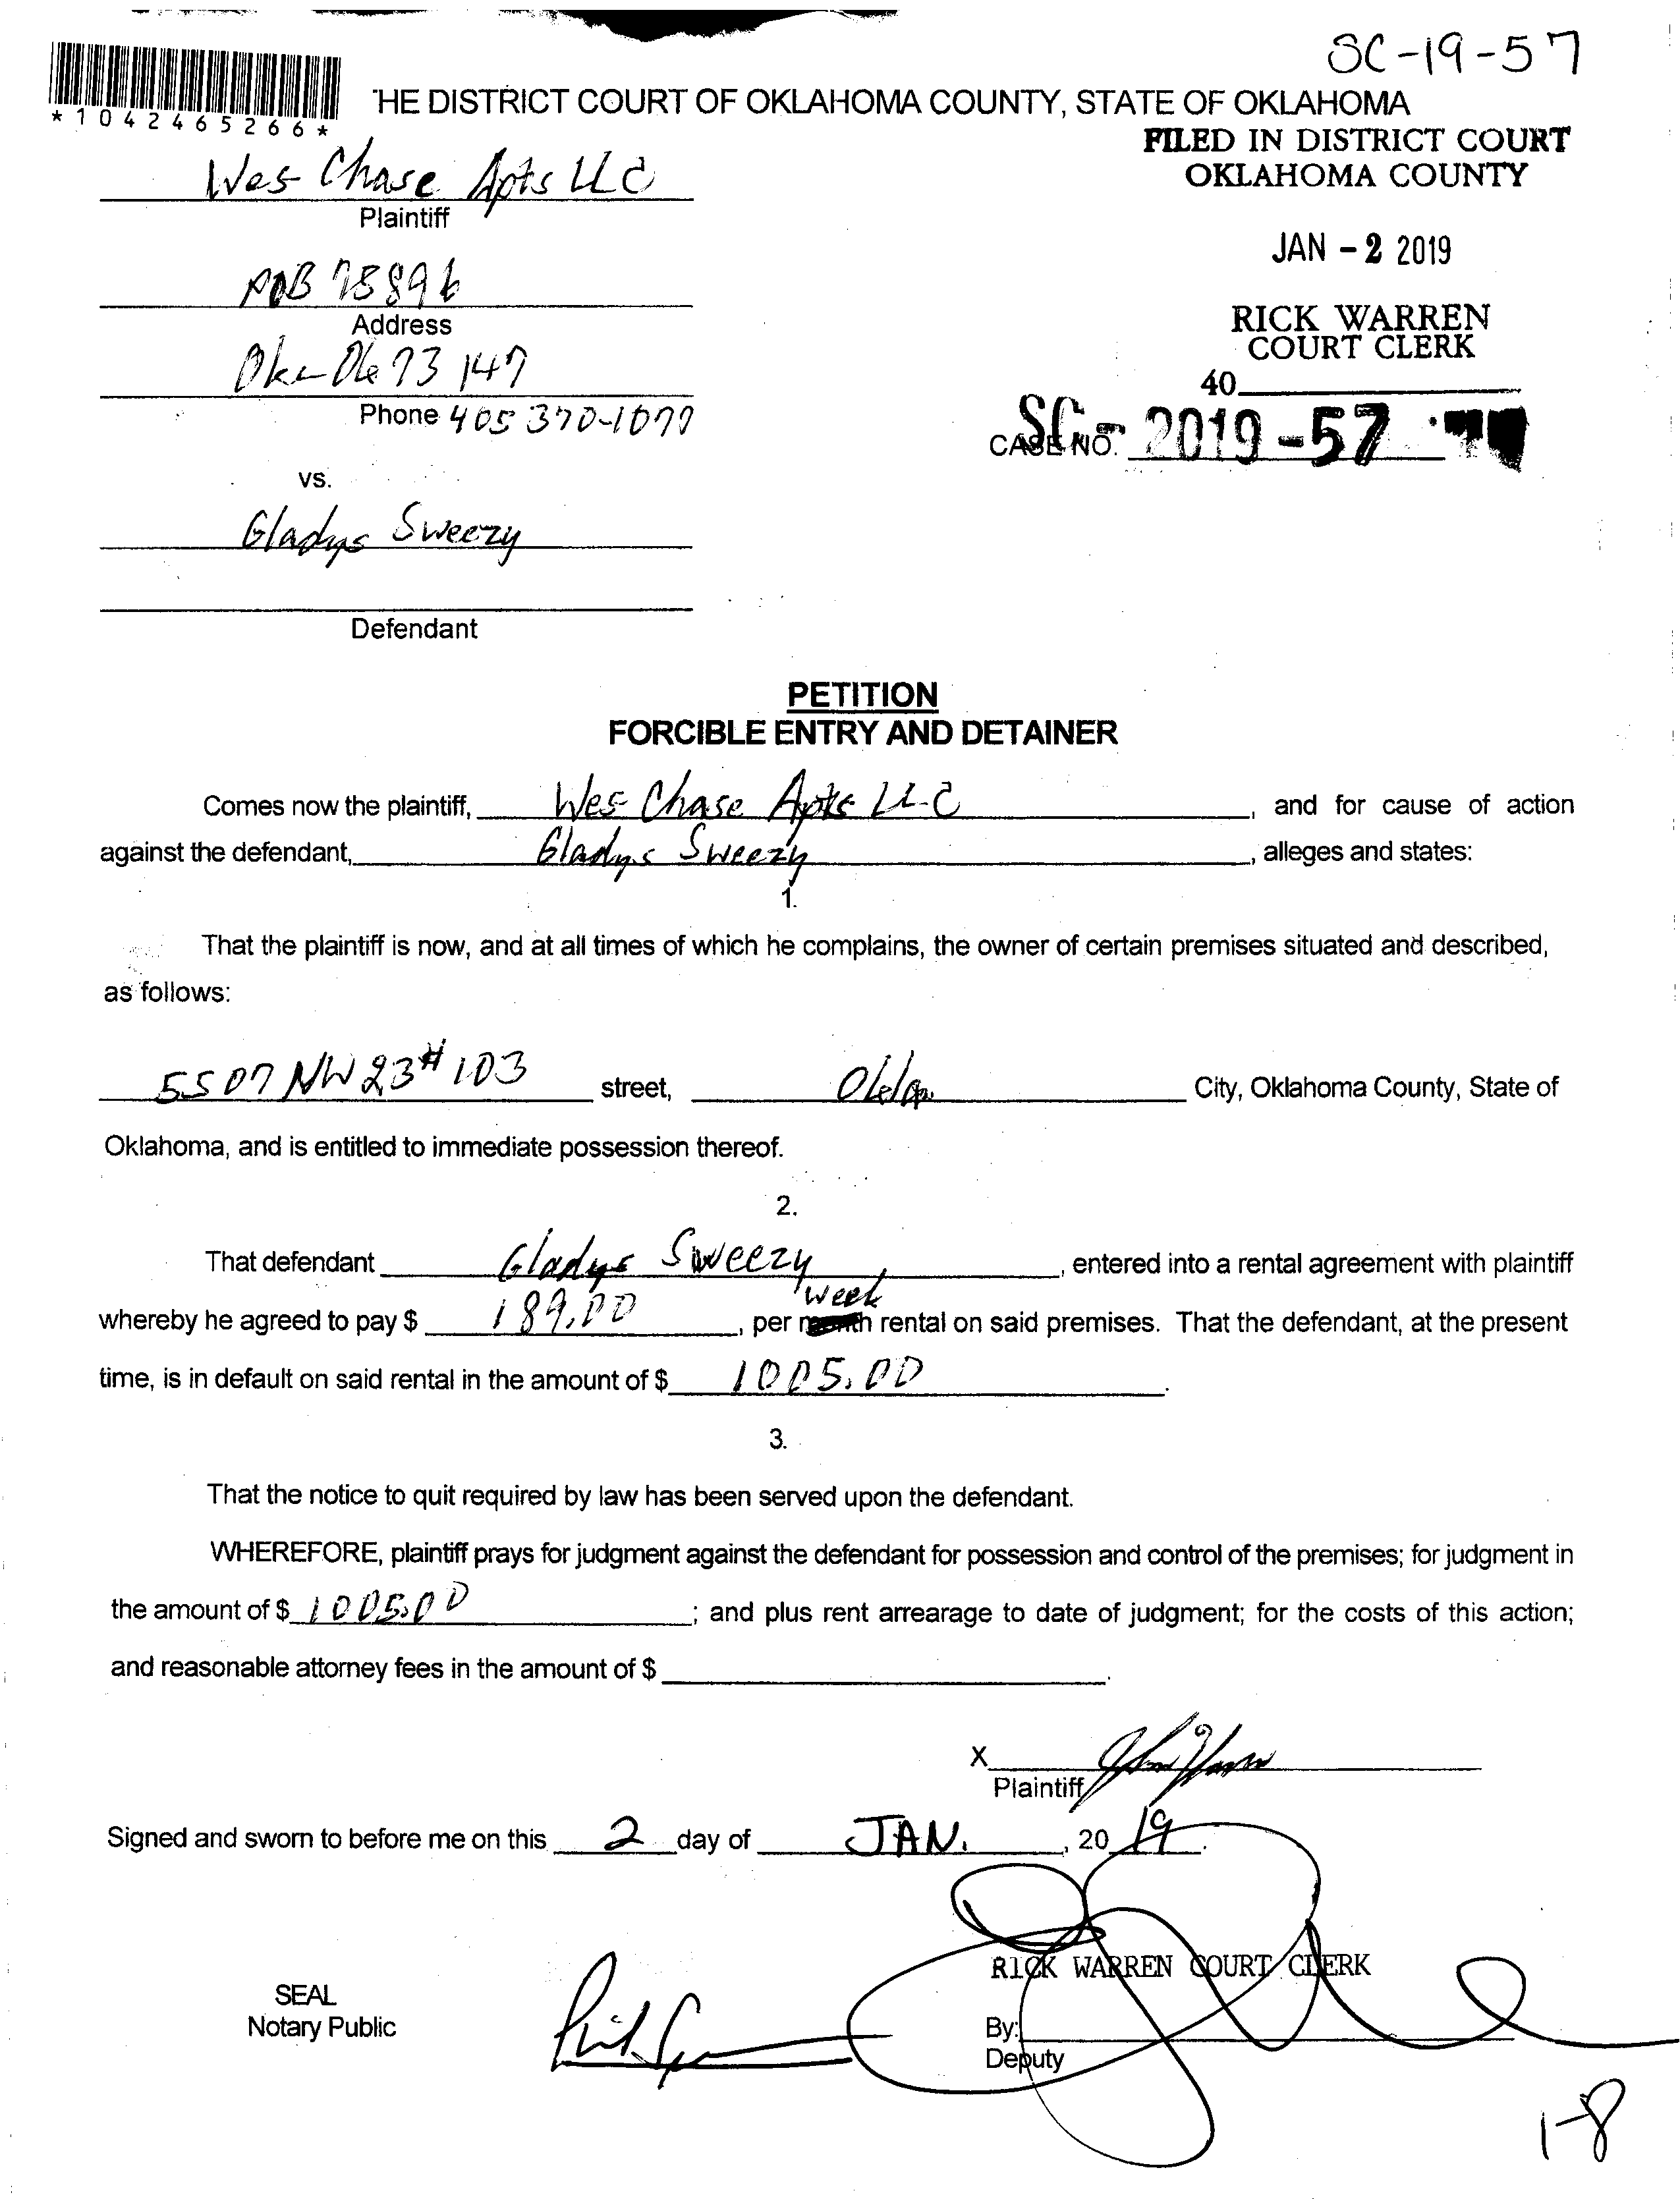 SC-19-57
*1042465266*
HE DISTRICT COURT OF OKLAHOMA COUNTY, STATE OF OKLAHOMA
FILED IN DISTRICT COURT
OKLAHOMA COUNTY
Wes Chase Apts LLC
Plaintiff
JAN - 2 2019
POB 75896
Address
RICK WARREN
COURT CLERK
73147
40
Phone 405 370-1077
CASE NO. SC- 2019 -57
vs.
Gladys Sweezy
Defendant
PETITION
FORCIBLE ENTRY AND DETAINER
Comes now the plaintiff, Wes Chase Apts LLC, and for cause of action
against the defendant, Gladys Sweezy, alleges and states:
1.
That the plaintiff is now, and at all times of which he complains, the owner of certain premises situated and described,
as follows:
5507 NW 23 # 103 street, City, Oklahoma County, State of
Oklahoma, and is entitled to immediate possession thereof.
2.
That defendant Gladys Sweezy, entered into a rental agreement with plaintiff
whereby he agreed to pay $ 189.00, per week rental on said premises. That the defendant, at the present
time, is in default on said rental in the amount of $ 1005.00.
3.
That the notice to quit required by law has been served upon the defendant.
WHEREFORE, plaintiff prays for judgment against the defendant for possession and control of the premises; for judgment in
the amount of $ 1005.00; and plus rent arrearage to date of judgment; for the costs of this action;
and reasonable attorney fees in the amount of $.
X
Plaintiff
Signed and sworn to before me on this 2 day of JAN., 20 19.
RICK WARREN COURT CLERK
SEAL
Notary Public
By:
Deputy
1-8